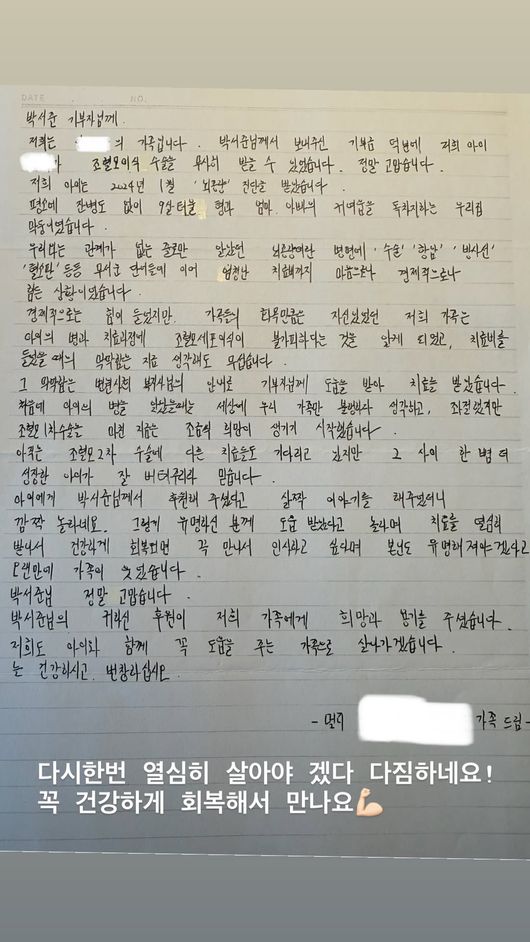 DATE . . . NO.
박서준 기부자님께.
저희는 의 가족입니다. 박서준님께서 보내주신 기부금 덕분에 저희 아이
가 조혈모이식 수술을 무사히 받을 수 있었습니다. 정말 고맙습니다.
저희 아이는 2024년 1월 '뇌종양' 진단을 받았습니다.
평소에 잔병도 없이 9살 터울 형과 엄마. 아빠의 귀여움을 독차지하는 우리집
막둥이였습니다.
우리와는 관계가 없는 줄로만 알았던 뇌종양이란 병명에 '수술' '항암' '방사선'
'혈소판' 등등 무서운 단어들에 이어 엄청난 치료비까지 마음으로나 경제적으로나
힘든 상황이었습니다.
경제적으로는 힘이 들었지만, 가족들의 화목만큼은 자신있었던 저희 가족은
아이의 병과 치료과정에 조혈모세포이식이 불가피하다는 것을 알게 되었고, 치료비를
들었을 때의 막막함은 지금 생각해도 무섭습니다.
그 막막함는 병원사회 복지사님의 안내로 기부자님께 도움을 받아 치료를 받았습니다.
처음에 아이의 병을 알았을때는 세상에 우리 가족만 불행하다 생각하고, 좌절했지만
조혈모 1차수술을 마친 지금은 조금씩 희망이 생기기 시작했습니다.
아직은 조혈모 2차 수술에 다른 치료들도 기다리고 있지만 그 사이 한 뼘 더
성장한 아이가 잘 버텨주리라 믿습니다.
아이에게 박서준님께서 후원해 주셨다고 살짝 이야기를 해주었더니
깜짝 놀라네요. 그렇게 유명하신 분께 도움 받았다고 놀라며 치료를 열심히
받아서 건강하게 회복되면 꼭 만나서 인사하고 싶다며 본인도 유명해져야겠다고
오랜만에 가족이 웃었습니다.
박서준님 정말 고맙습니다.
박서준님의 귀하신 후원이 저희 가족에게 희망과 용기를 주셨습니다.
저희도 아이와 함께 꼭 도움을 주는 가족으로 살아가겠습니다.
늘 건강하시고. 번창하십시오.
- 멀리 가족 드림 -
다시한번 열심히 살아야 겠다 다짐하네요!
꼭 건강하게 회복해서 만나요💪🏻